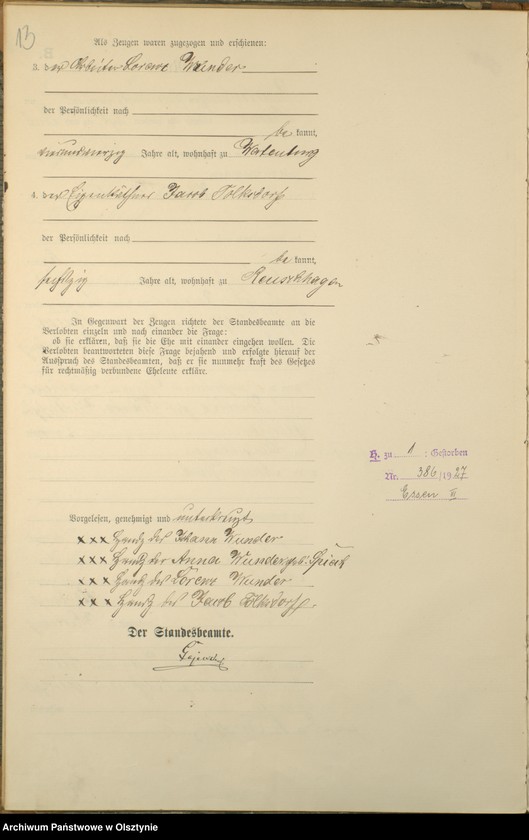 13
Als Zeugen waren zugezogen und erschienen:
3. der Arbeiter Lorenz Wunder
der Persönlichkeit nach
be kannt,
vierundvierzig Jahre alt, wohnhaft zu Wartenburg
4. der Eigenkäthner Jacob Tolksdorf
der Persönlichkeit nach
be kannt,
sechszig Jahre alt, wohnhaft zu Reuschhagen
In Gegenwart der Zeugen richtete der Standesbeamte an die
Verlobten einzeln und nach einander die Frage:
ob sie erklären, daß sie die Ehe mit einander eingehen wollen. Die
Verlobten beantworteten diese Frage bejahend und erfolgte hierauf der
Ausspruch des Standesbeamten, daß er sie nunmehr kraft des Gesetzes
für rechtmäßig verbundene Eheleute erkläre.
H. zu 1 : Gestorben
Nr. 386/1927
Essen
Vorgelesen, genehmigt und unterkreuzt
xxx Handz des Johann Wunder
xxx Handz der Anna Wunder geb.
xxx Handz des Lorenz Wunder
xxx Handz des Jacob Tolksdorf.
Der Standesbeamte.
Archiwum Państwowe w Olsztynie